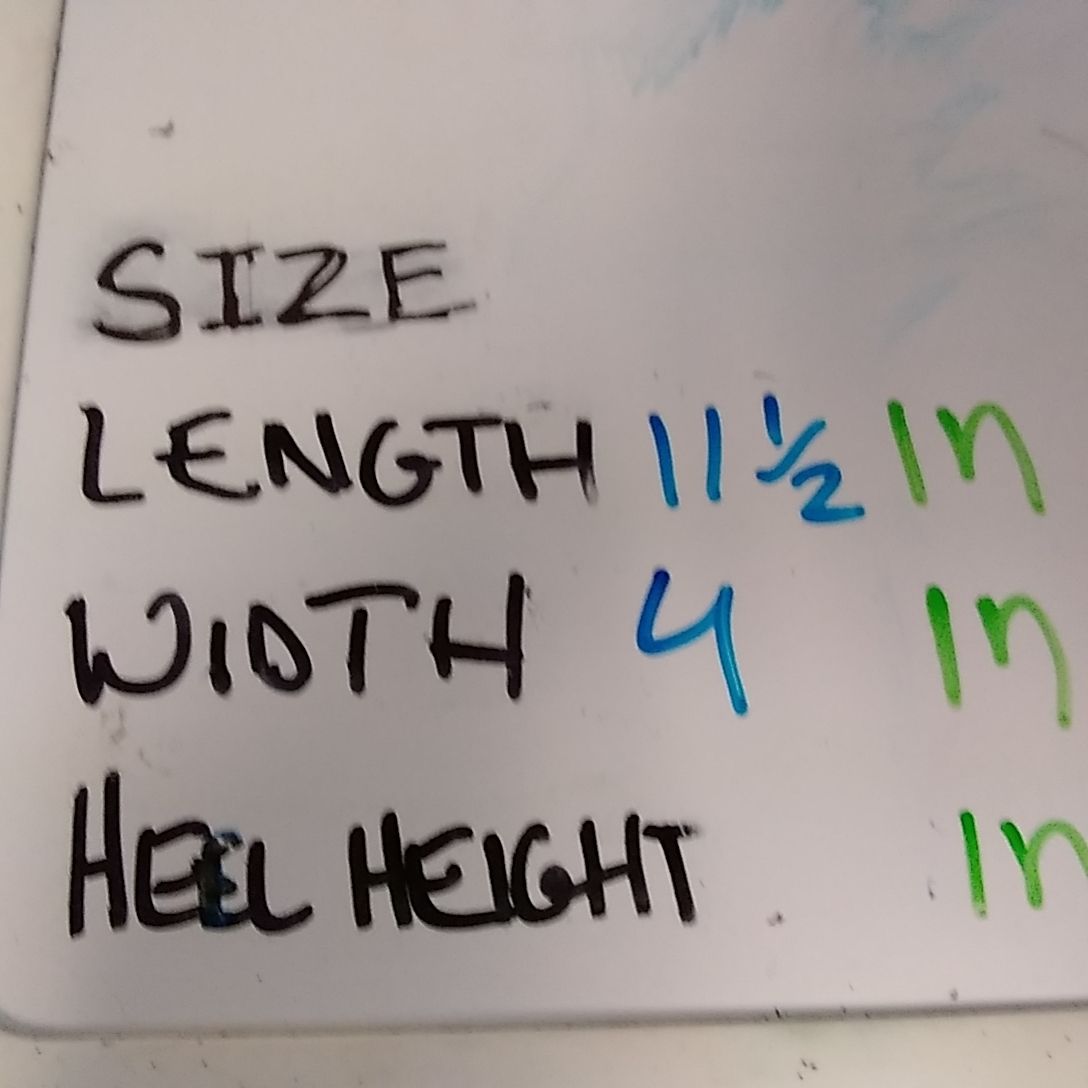 SIZE
LENGTH 11 1/2 In
WIDTH 4 In
HEEL HEIGHT In